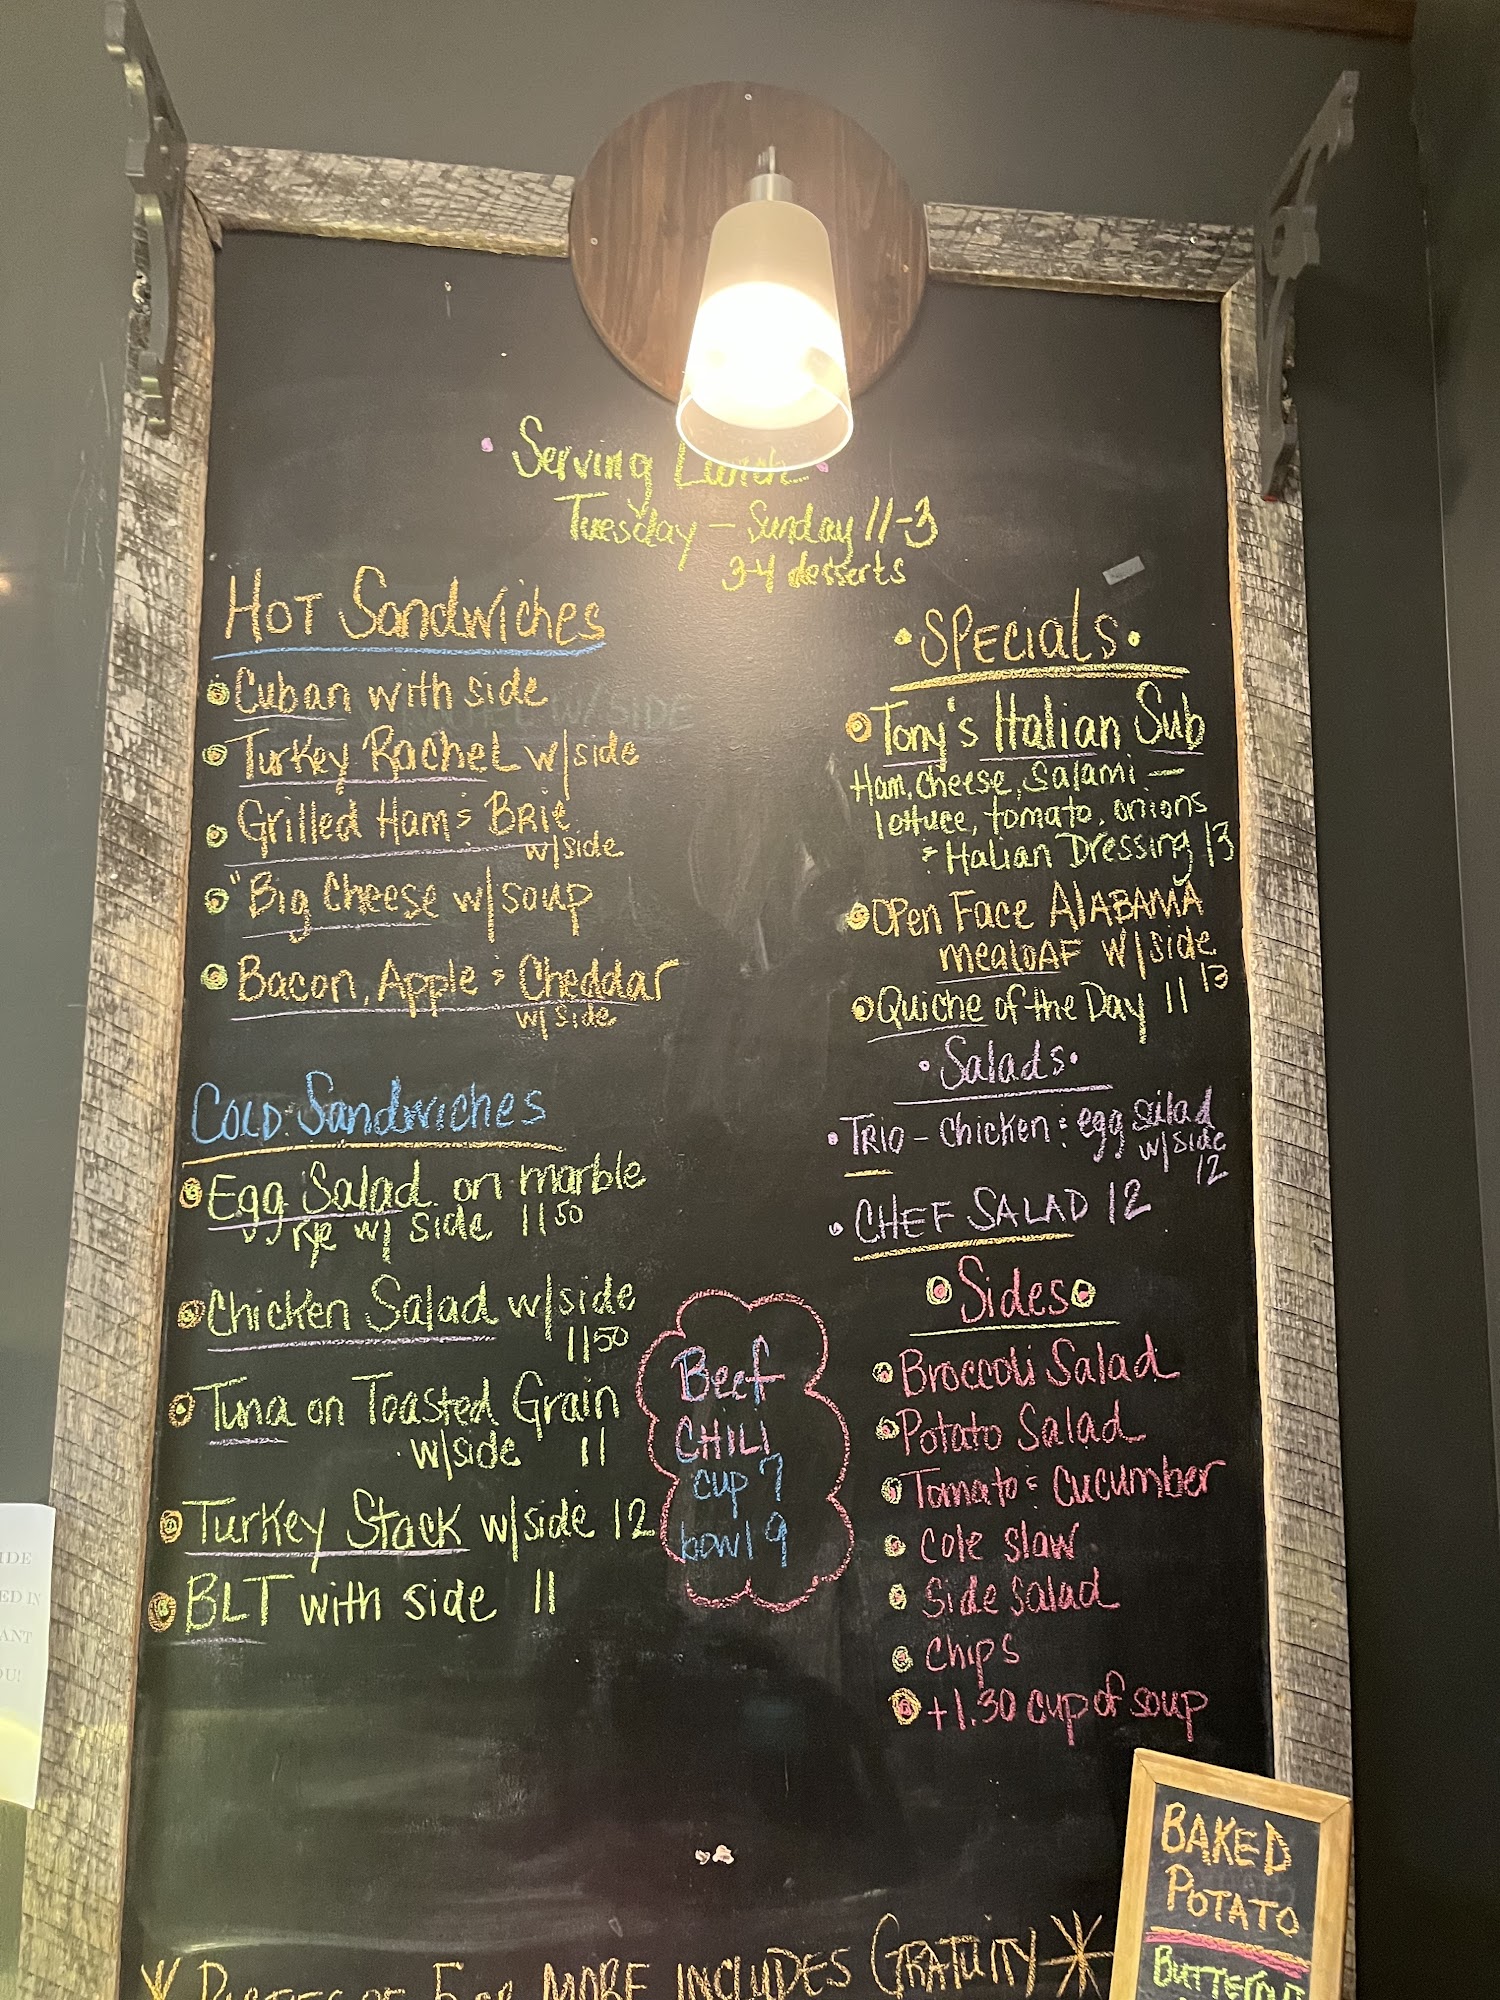 Serving Lunch
Tuesday - Sunday 11-3
3-4 desserts
HOT Sandwiches
Cuban with side
Turkey Rachel w/side
Grilled Ham & Brie
w/side
"Big Cheese w/soup
Bacon, Apple & Cheddar
w/side
Cold Sandwiches
Egg Salad on marble
rye w/ side 11 50
Chicken Salad w/side
11 50
Tuna on Toasted Grain
w/side 11
Turkey Stack w/side 12
BLT with side 11
Beef
CHILI
cup 7
bowl 9
SPECIALS
Tony's Italian Sub
Ham, cheese, Salami —
lettuce, tomato, onions
& Italian Dressing 13
Open Face ALABAMA
mealoAF w/side
13
Quiche of the Day 11
Salads
TRIO - Chicken & egg salad
w/side
12
CHEF SALAD 12
Sides
Broccoli Salad
Potato Salad
Tomato & Cucumber
Cole slaw
Side Salad
Chips
+1.30 cup of soup
PARTIES OF 5 OR MORE INCLUDES GRATUITY
BAKED
POTATO
IDE
ED IN
ANT
OU!